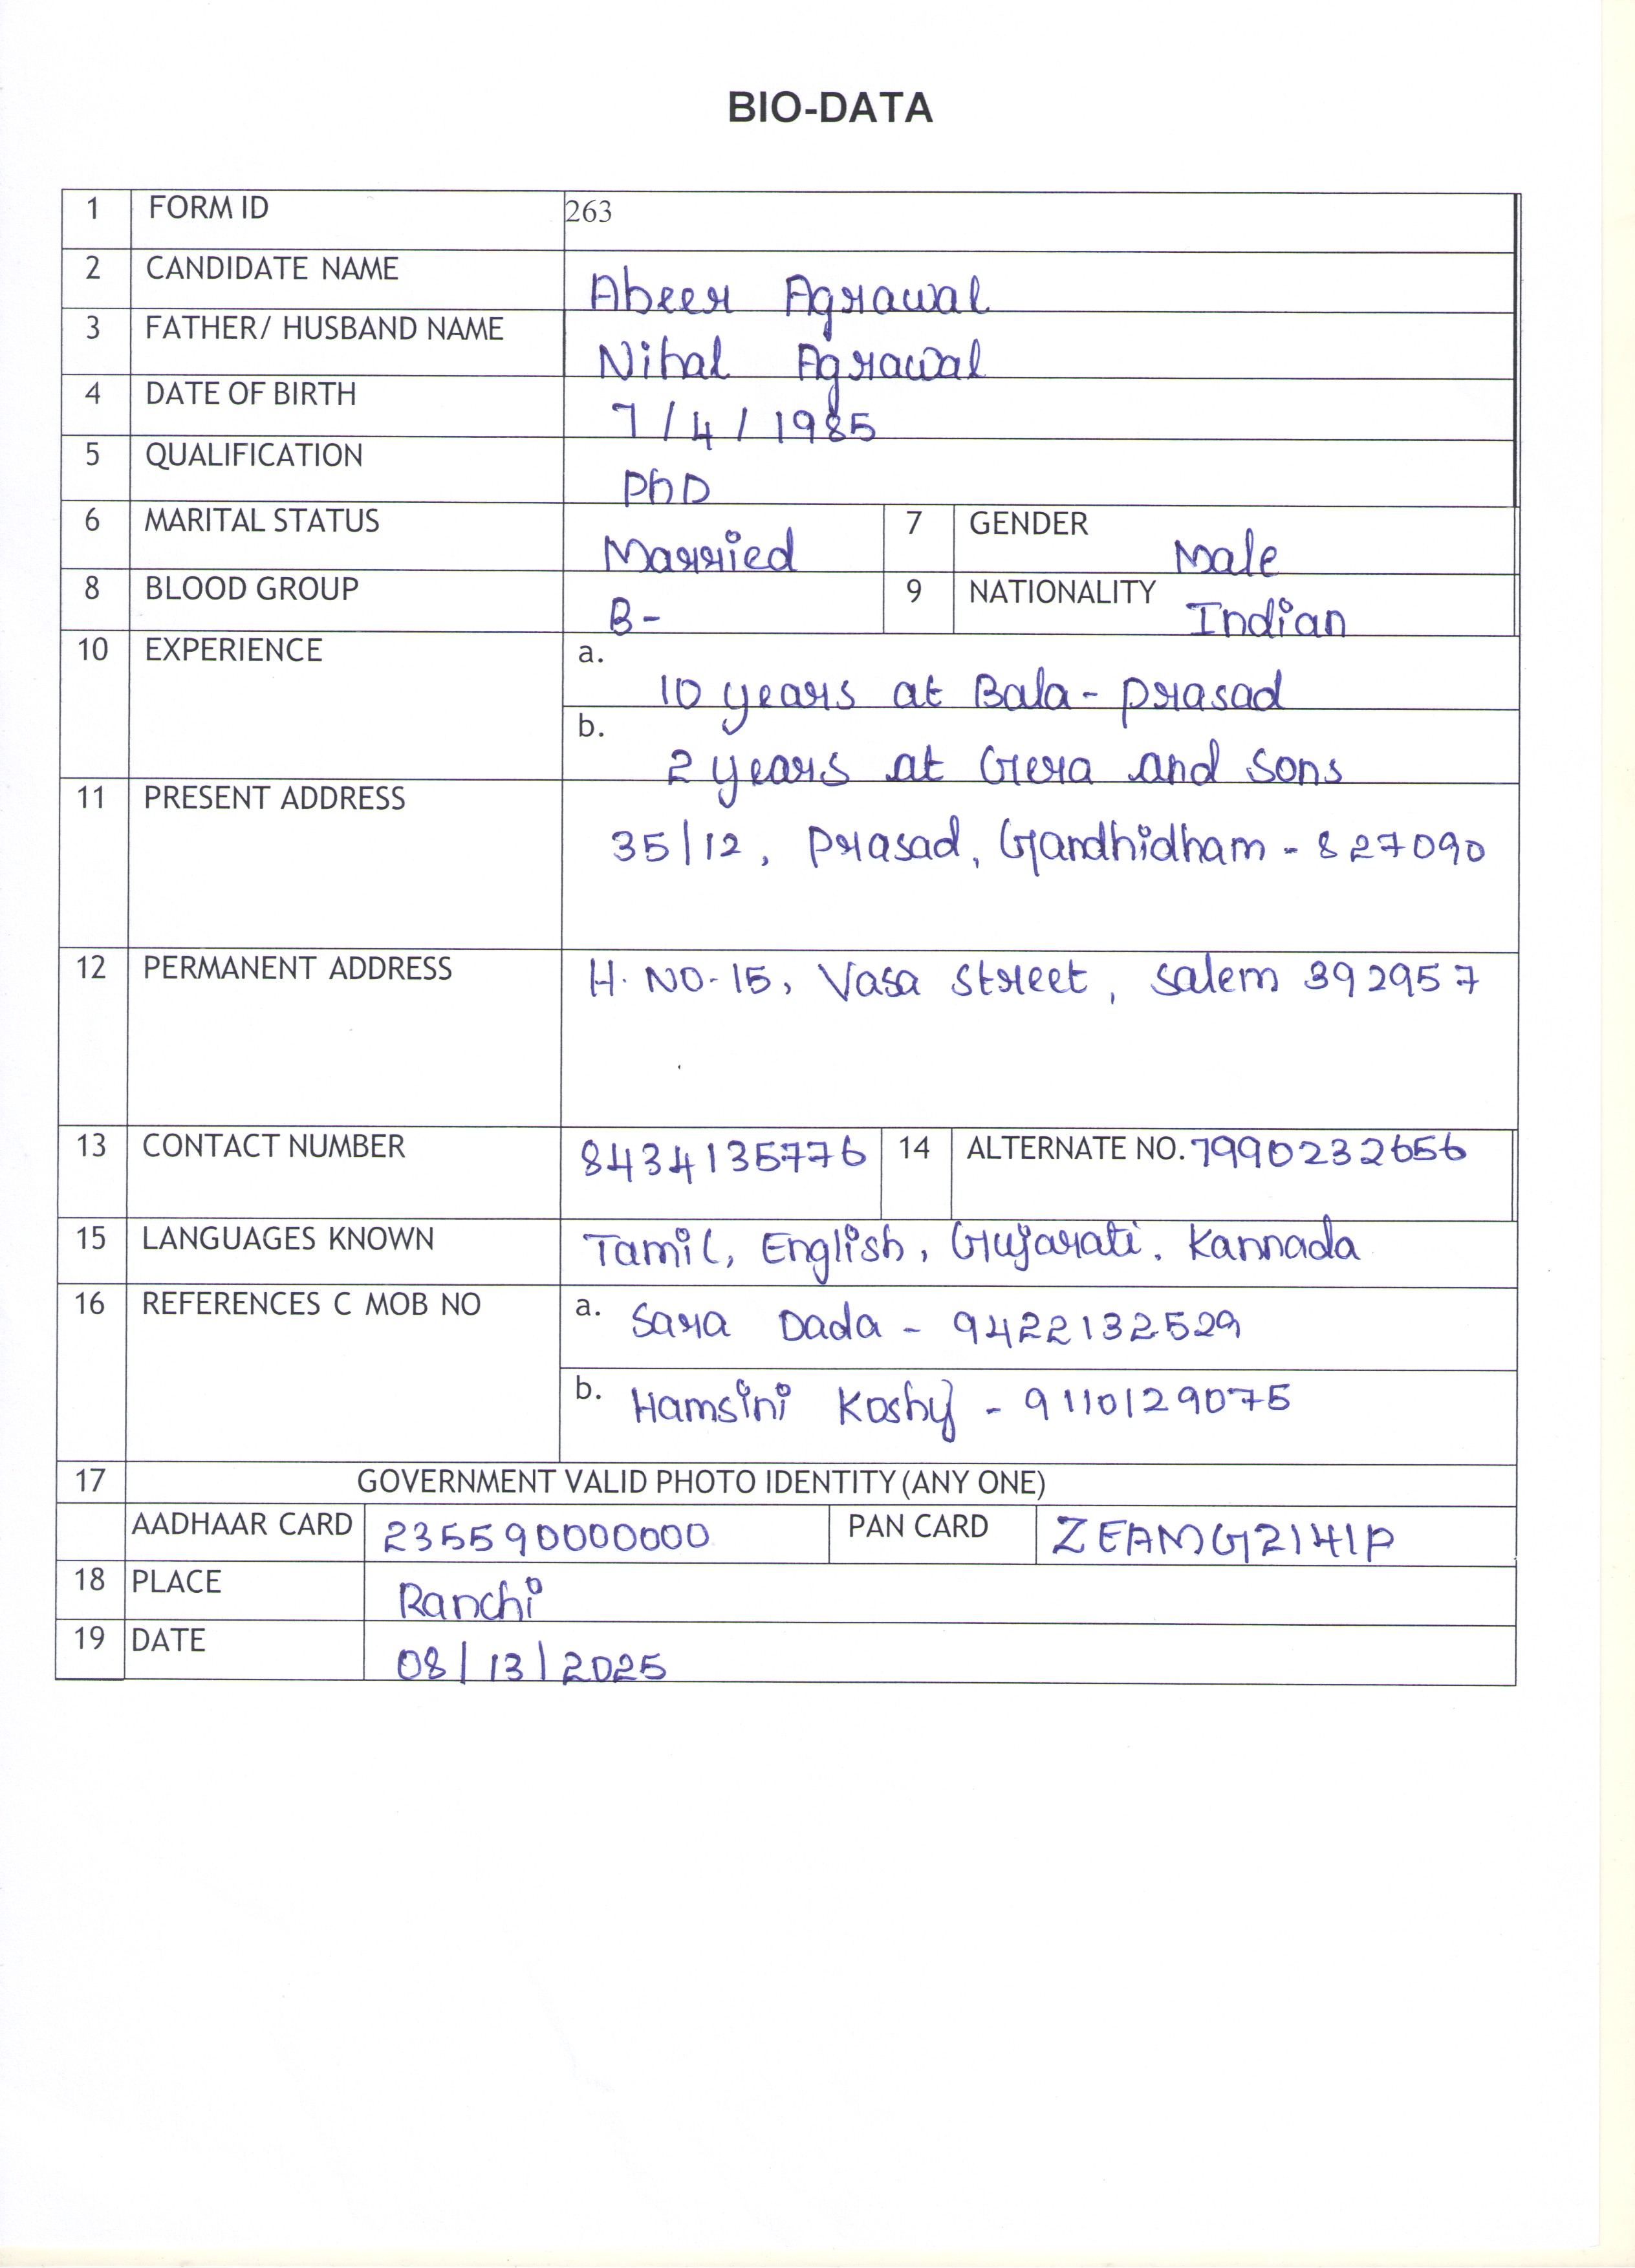 BIO-DATA
1 FORM ID 263
2 CANDIDATE NAME Abeer Agrawal
3 FATHER/ HUSBAND NAME Nihal Agrawal
4 DATE OF BIRTH 7/4/1985
5 QUALIFICATION PhD
6 MARITAL STATUS Married 7 GENDER Male
8 BLOOD GROUP B- 9 NATIONALITY Indian
10 EXPERIENCE a. 10 years at Bala-prasad
b. 2 years at Gera and sons
11 PRESENT ADDRESS 35/12, Prasad, Gandhidham - 827090
12 PERMANENT ADDRESS H. NO-15, Vasa Street, Salem 392957
13 CONTACT NUMBER 8434135776 14 ALTERNATE NO. 7990232656
15 LANGUAGES KNOWN Tamil, English, Gujarati, Kannada
16 REFERENCES C MOB NO a. Sara Dada - 9422132529
b. Hamsini Koshy - 9110129075
17 GOVERNMENT VALID PHOTO IDENTITY (ANY ONE)
AADHAAR CARD 235590000000 PAN CARD ZEAMG2141P
18 PLACE Ranchi
19 DATE 08/13/2025